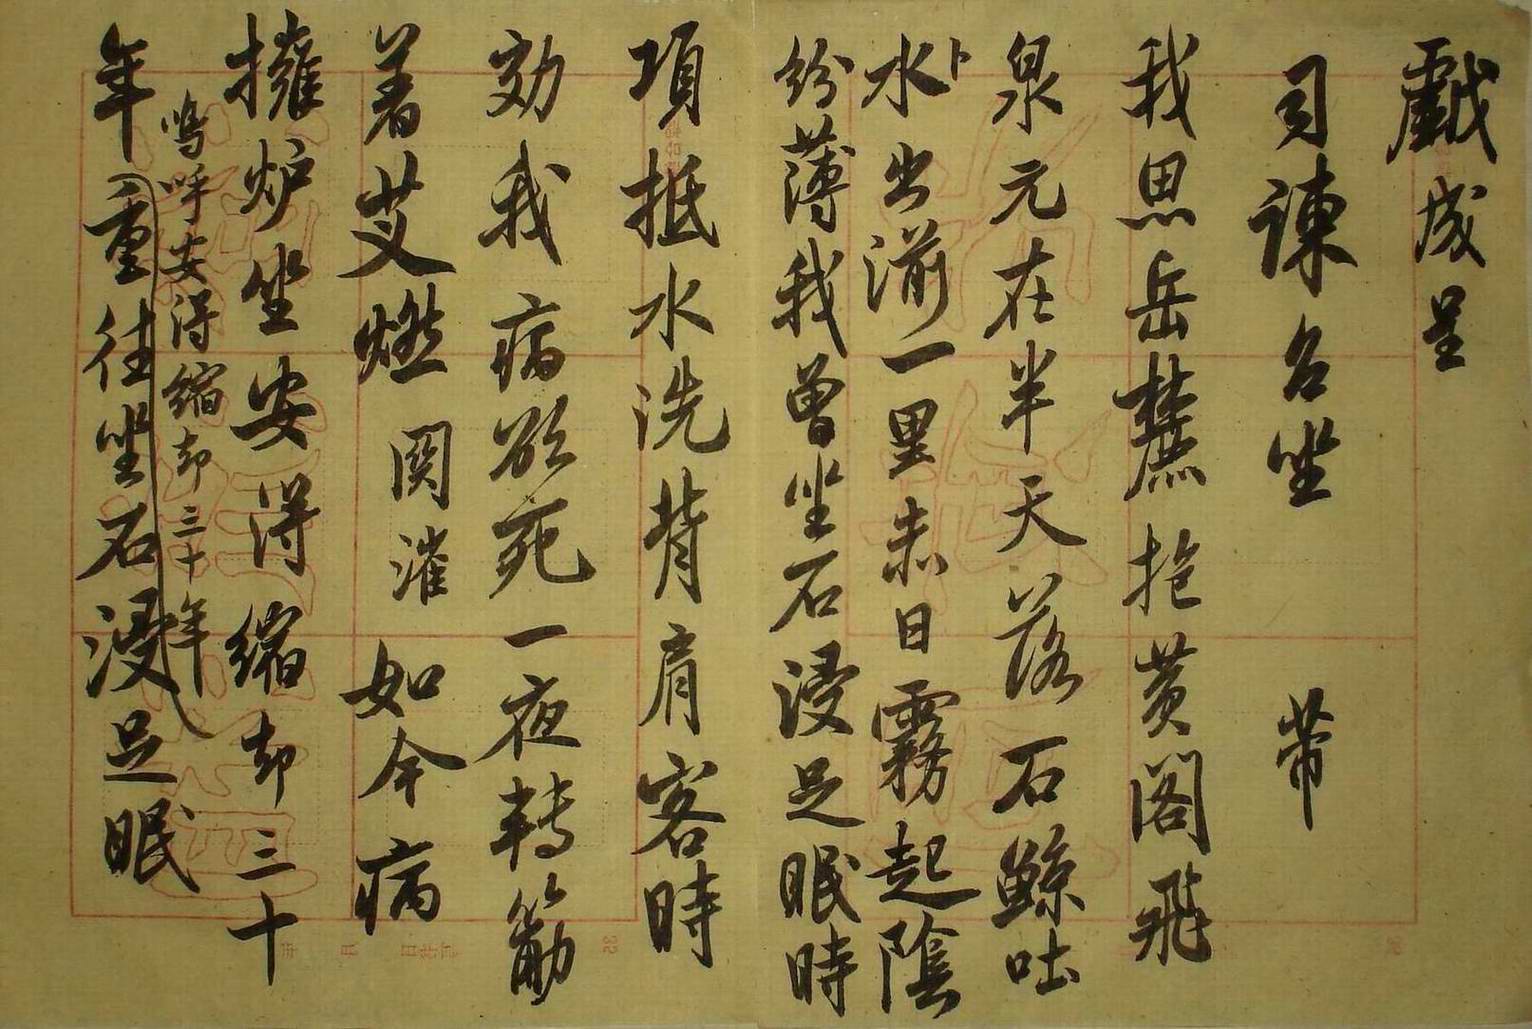 戲成呈
司諫台坐 芾
我思岳麓抱黄閣飛
泉元在半天落石鯨吐
水卜出湔一里赤日霧起陰
紛薄我曾坐石浸足眠時
項抵水洗背肩客時
効我病欲死一夜轉筋
着艾燃関灌如今病
擁炉坐安得縮却三十
嗚呼安得縮却三十年
年重往坐石浸足眠